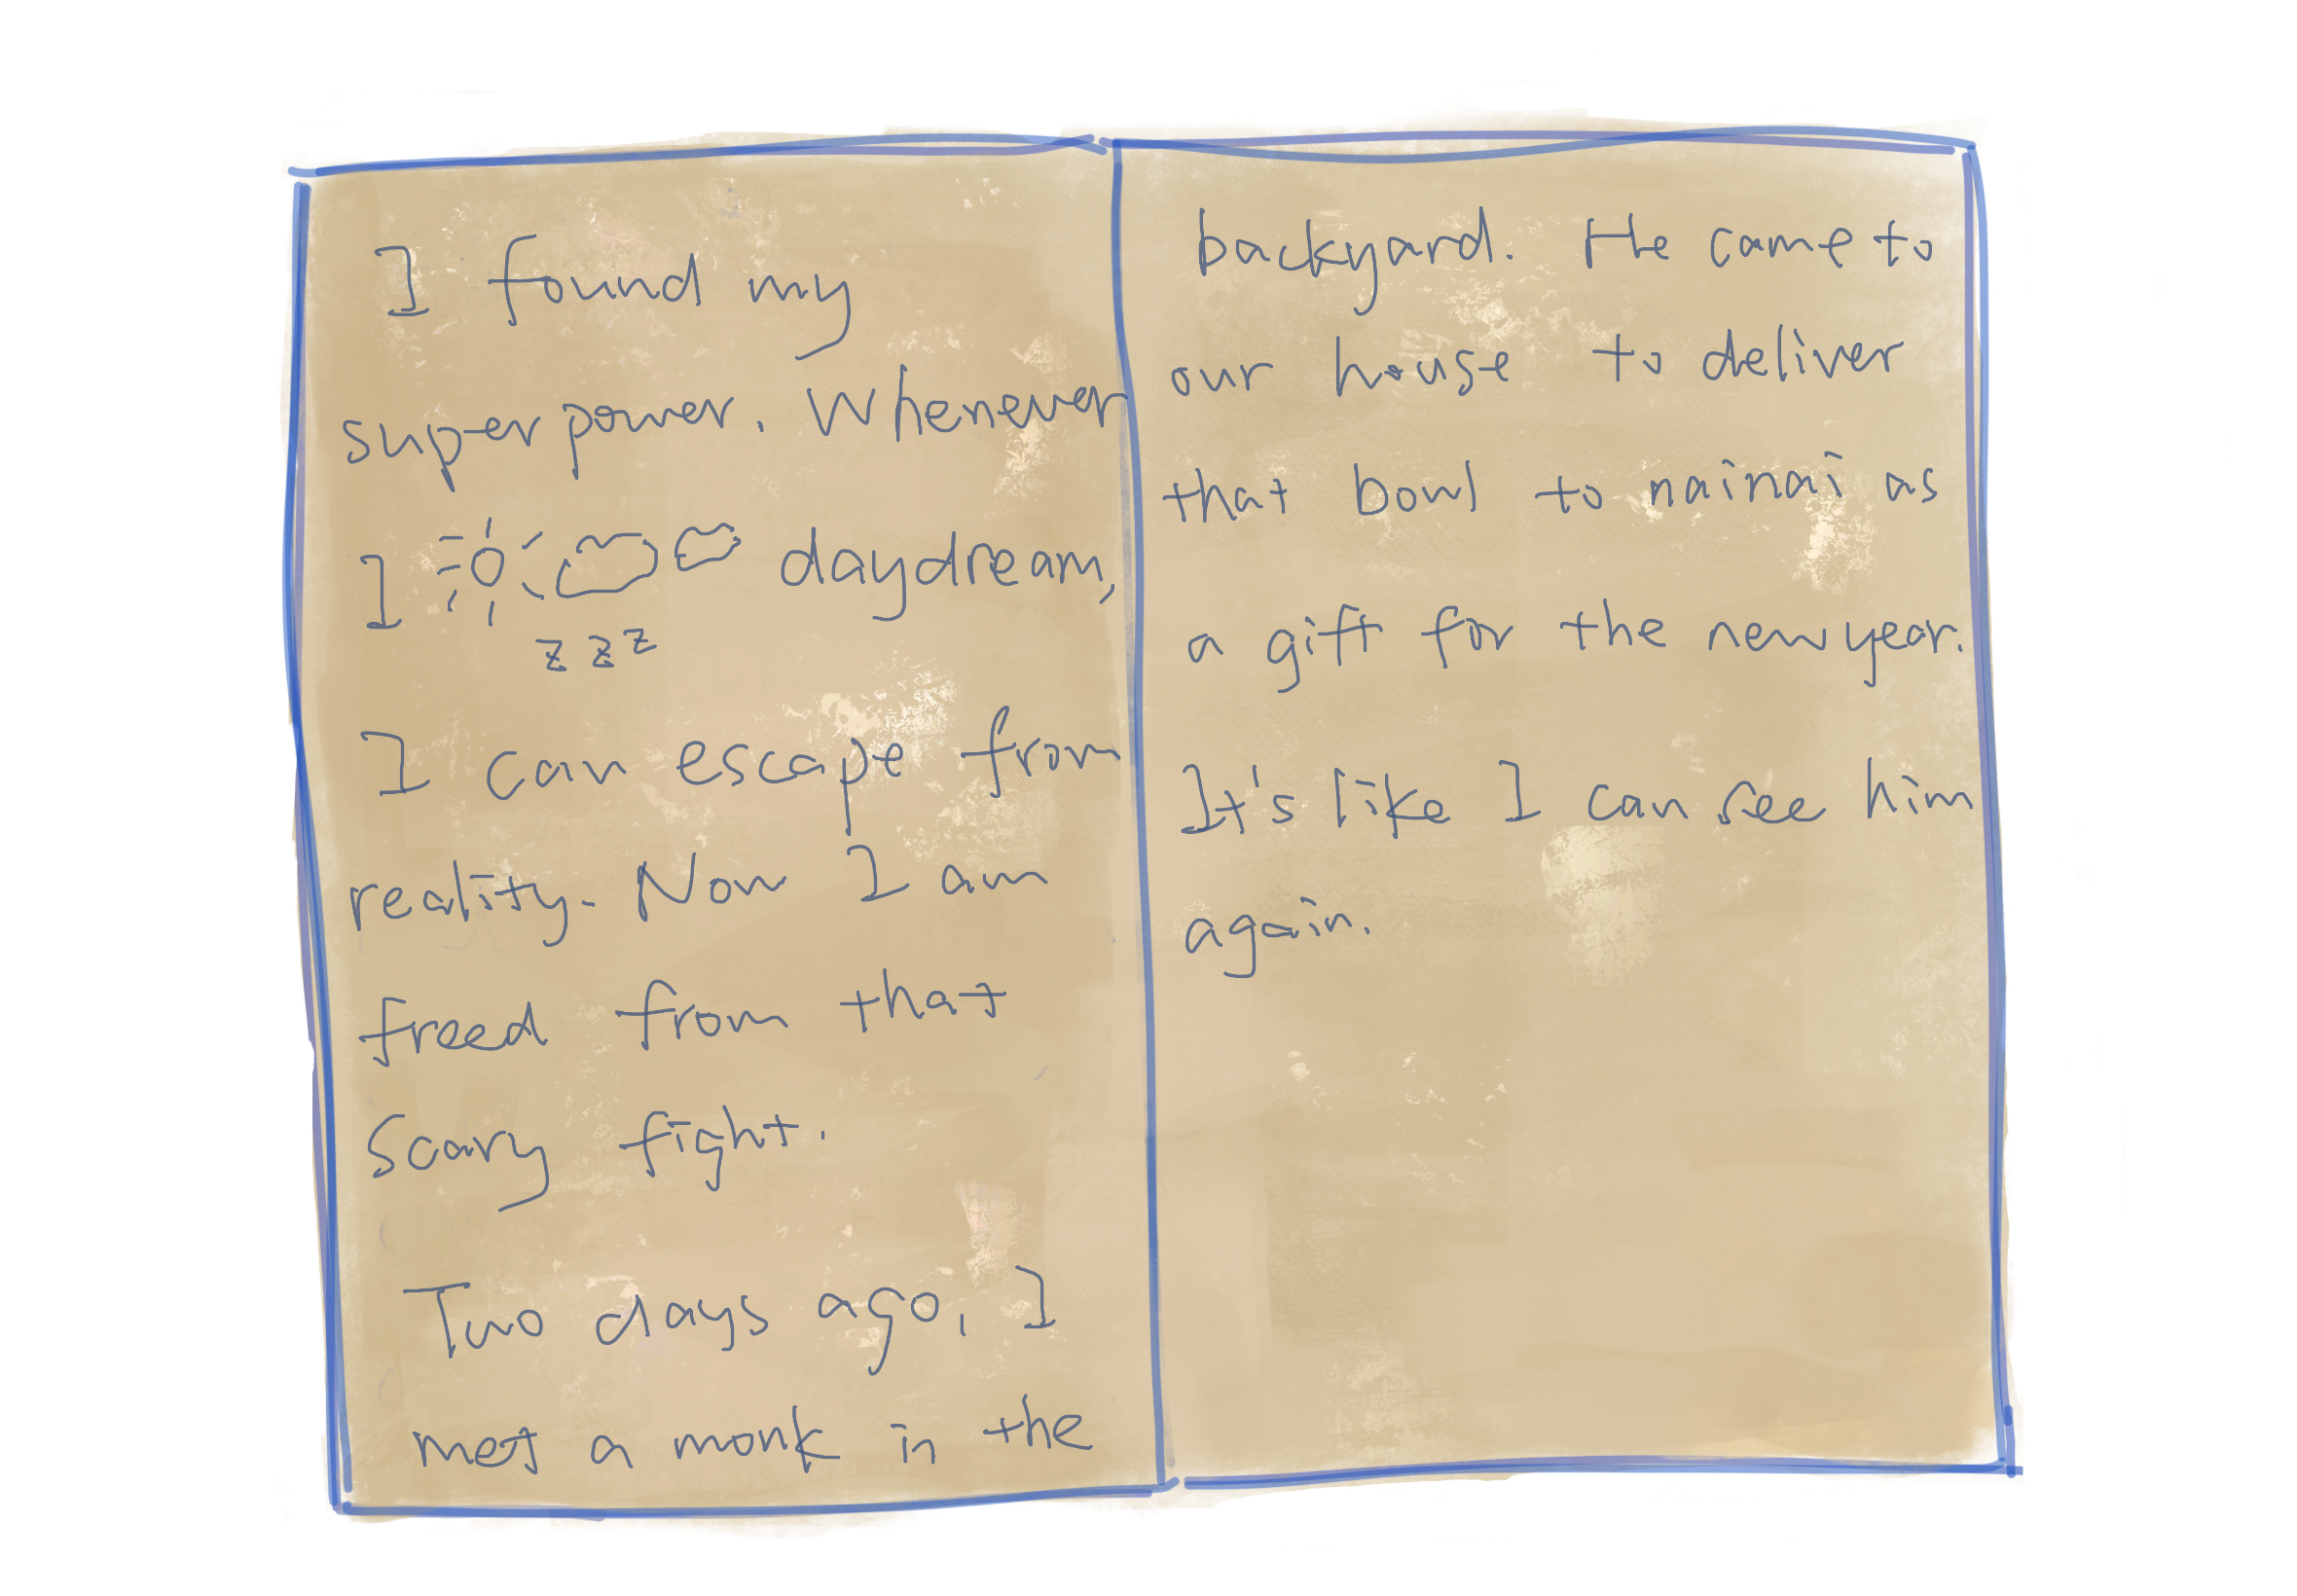 I found my
superpower. Whenever
I daydream,
z z z
I can escape from
reality. Now I am
freed from that
scary fight.
Two days ago, I
met a monk in the
backyard. He came to
our house to deliver
that bowl to nainai as
a gift for the new year.
It's like I can see him
again.